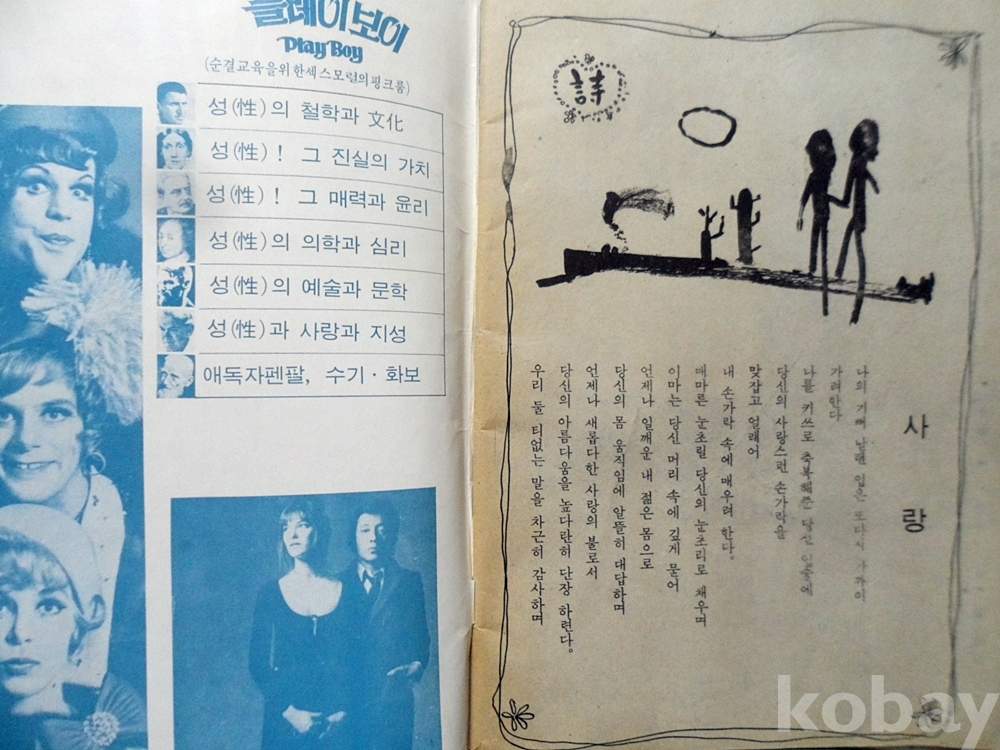 플레이보이
Play Boy
(순결교육을위한섹스모럴의핑크룸)
성(性)의 철학과 文化
성(性)! 그 진실의 가치
성(性)! 그 매력과 윤리
성(性)의 의학과 심리
성(性)의 예술과 문학
성(性)과 사랑과 지성
애독자펜팔, 수기·화보
詩
사랑
나의 기뻐 입은 또다시
가려한다
나를 키쓰로 축복해준 당신
당신의 사랑스런 손가락을
맞잡고 얼래어
내 손가락 속에 매우려 한다.
메마른 눈초릴 당신의 눈초리로 채우며
이마는 당신 머리 속에 깊게 묻어
언제나 일깨운 내 젊은 몸으로
당신의 몸 움직임에 알뜰히 대답하며
언제나 새롭다한 사랑의 불로서
당신의 아름다움을 높다란히 단장 하련다.
우리 둘 티없는 말을 차근히 감사하며
kobay